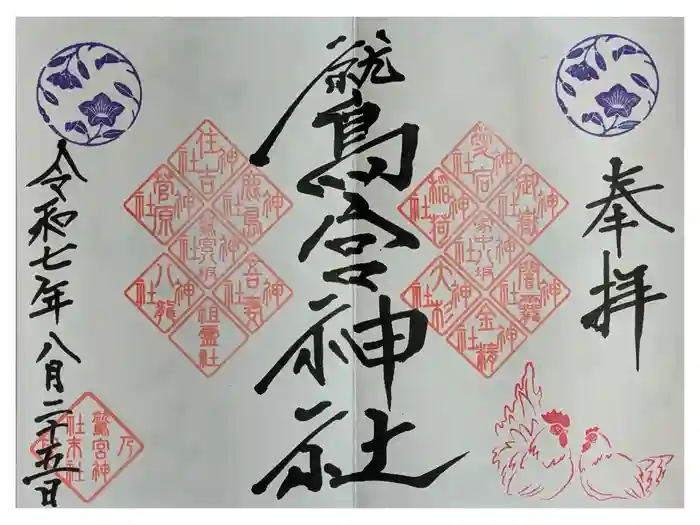 奉拝
愛宕神社
御嶽神社
稲荷神社
闇靇神社
大杉神社
金精神社
鷲宮神社
住吉神社
鹿島神社
菅原神社
吾妻神社
八龍神社
祖霊社
令和七年八月二十五日
鷲宮神
社末社
乃